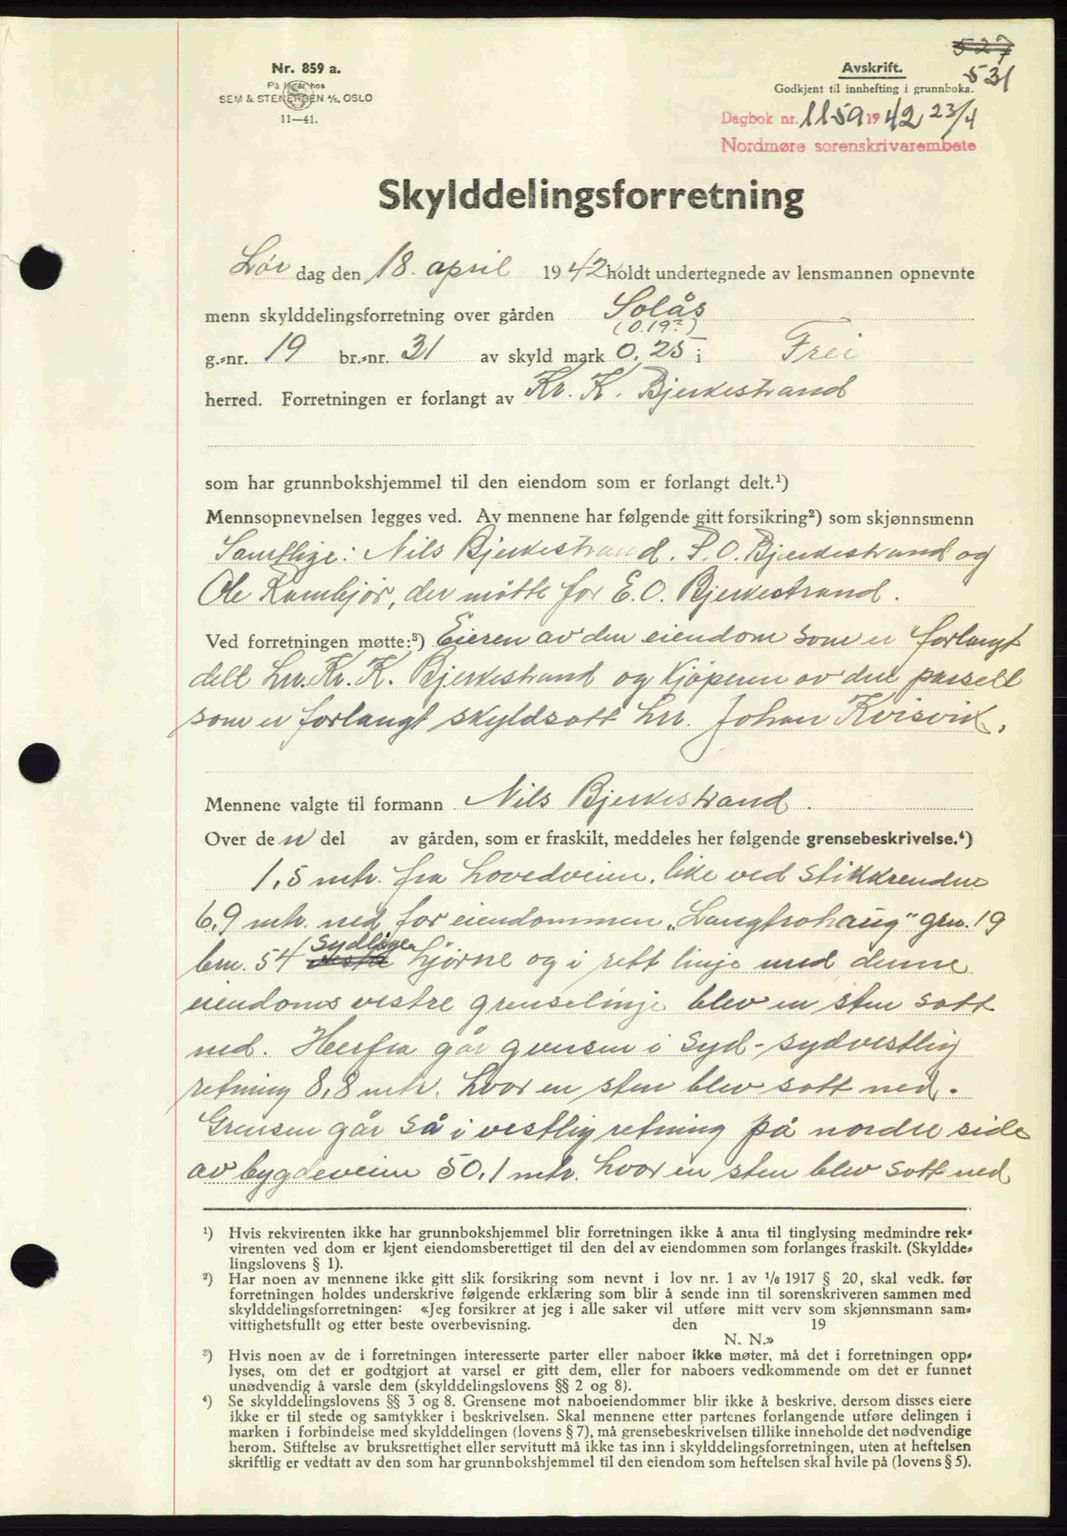 527
531
Nr. 859 a.
På lager hos
SEM & STENERSEN A/S, OSLO
11—41.
Avskrift.
Godkjent til innhefting i grunnboka.
Dagbok nr. 1159 1942 23/4
Nordmøre sorenskrivarembete
Skylddelingsforretning
Lør dag den 18. april 1942 holdt undertegnede av lensmannen opnevnte
menn skylddelingsforretning over gården Solås
(0.19?)
g.-nr. 19 br.-nr. 31 av skyld mark 0,25 i Frei
herred. Forretningen er forlangt av Kr. K. Bjerkestrand
som har grunnbokshjemmel til den eiendom som er forlangt delt.¹)
Mennsopnevnelsen legges ved. Av mennene har følgende gitt forsikring²) som skjønnsmenn
Samtlige: Nils Bjerkestrand, P. O. Bjerkestrand og
Ole Rambjør, der møtte for E. O. Bjerkestrand.
Ved forretningen møtte:³) Eieren av den eiendom som er forlangt
delt hr. Kr. K. Bjerkestrand og kjøperen av det parsell
som er forlangt skyldsatt hr. Johan Kvisvik.
Mennene valgte til formann Nils Bjerkestrand.
Over den del av gården, som er fraskilt, meddeles her følgende grensebeskrivelse.⁴)
1,5 mtr. fra hovedveien, like ved stikkrenden
6,9 mtr. ned for eiendommen „Langhrohaug" grn. 19
brn. 54 sydligen hjørne og i rett linje med denne
eiendoms vestre grenselinje blev en sten satt
ned. Herfra går grensen i Syd-sydvestlig
retning 8,8 mtr. hvor en sten blev satt ned.
Grensen går så i vestlig retning på nordre side
av bygdeveien 50,1 mtr. hvor en sten blev satt ned
¹) Hvis rekvirenten ikke har grunnbokshjemmel blir forretningen ikke å anta til tinglysing medmindre rek-
virenten ved dom er kjent eiendomsberettiget til den del av eiendommen som forlanges fraskilt. (Skyldde-
lingslovens § 1).
²) Har noen av mennene ikke gitt slik forsikring som nevnt i lov nr. 1 av 1/6 1917 § 20, skal vedk. før
forretningen holdes underskrive følgende erklæring som blir å sende inn til sorenskriveren sammen med
skylddelingsforretningen: «Jeg forsikrer at jeg i alle saker vil utføre mitt verv som skjønnsmann sam-
vittighetsfullt og etter beste overbevisning. den 19
N. N.»
³) Hvis noen av de i forretningen interesserte parter eller naboer ikke møter, må det i forretningen opp-
lyses, om det er godtgjort at varsel er gitt dem, eller for naboers vedkommende om det er funnet
unødvendig å varsle dem (skylddelingslovens §§ 2 og 8).
⁴) Se skylddelingslovens §§ 3 og 8. Grensene mot naboeiendommer blir ikke å beskrive, dersom disses eiere
ikke er til stede og samtykker i beskrivelsen. Skal mennene etter partenes forlangende utføre delingen i
marken i forbindelse med skylddelingen (lovens § 7), må grensebeskrivelsen tillike inneholde det nødvendige
herom. Stiftelse av bruksrettighet eller servitutt må ikke tas inn i skylddelingsforretningen, uten at heftelsen
skriftlig er vedtatt av den som har grunnbokshjemmel til den eiendom som heftelsen skal hvile på (lovens § 5).